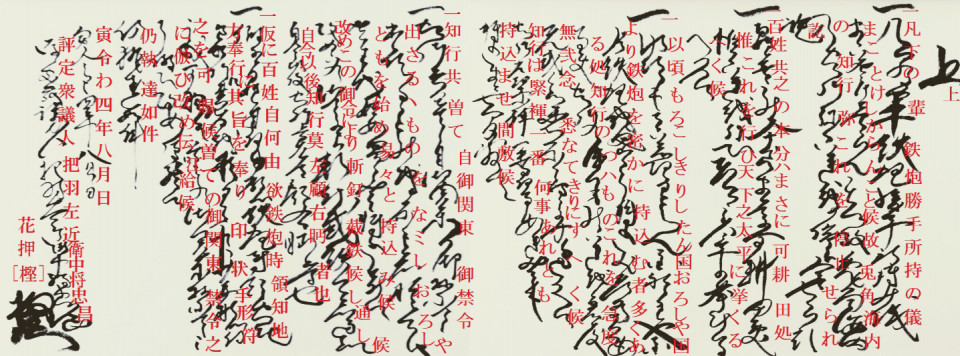 上
一 凡下の 輩 鉄炮勝手所持の儀
まことけしからんこと候故 兎角海内
の 知行 弥これを 停止 せられ
訖
一 百姓共之の本分ハまさに可耕 田処
惟 これを行ひ天下之太平に挙くる
へく候
一 以頃 もろこしきりし たん国おろしや国
より鉄炮を密かに 持込 む者多くあ
る処 知行のつハものこれを 急度
無弐念 悉なてきりにす へく候
知行は緊褌一番 何事あれとも
持込ませ間敷候
一 知行共 曽て 自御関東 御禁令
出さるゝものを なミし おろしや
ともを始め易々と持込 み候
改めこの御 り 断釘 截鉄候 し通し 候
自今以後知行莫 左顧右眄 者也
一 仮に百姓自何由 欲鉄炮時 領知地
方奉行 其旨を奉り 印 状 手形符
之を可 賜候曽ての御関東 禁令之
に倣ひ改め伝へ給候
仍執達如件
寅令わ四年八月日
評定衆議人 把羽左近衛中将忠昌
花押［樫］